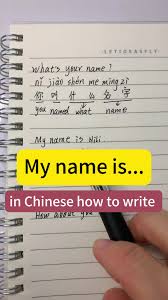 LETTERSFLY
What's your name?
nǐ jiào shén me míng zi
你叫什么名字
you named what name
My name is Nili
My name is...
in Chinese how to write
How about you